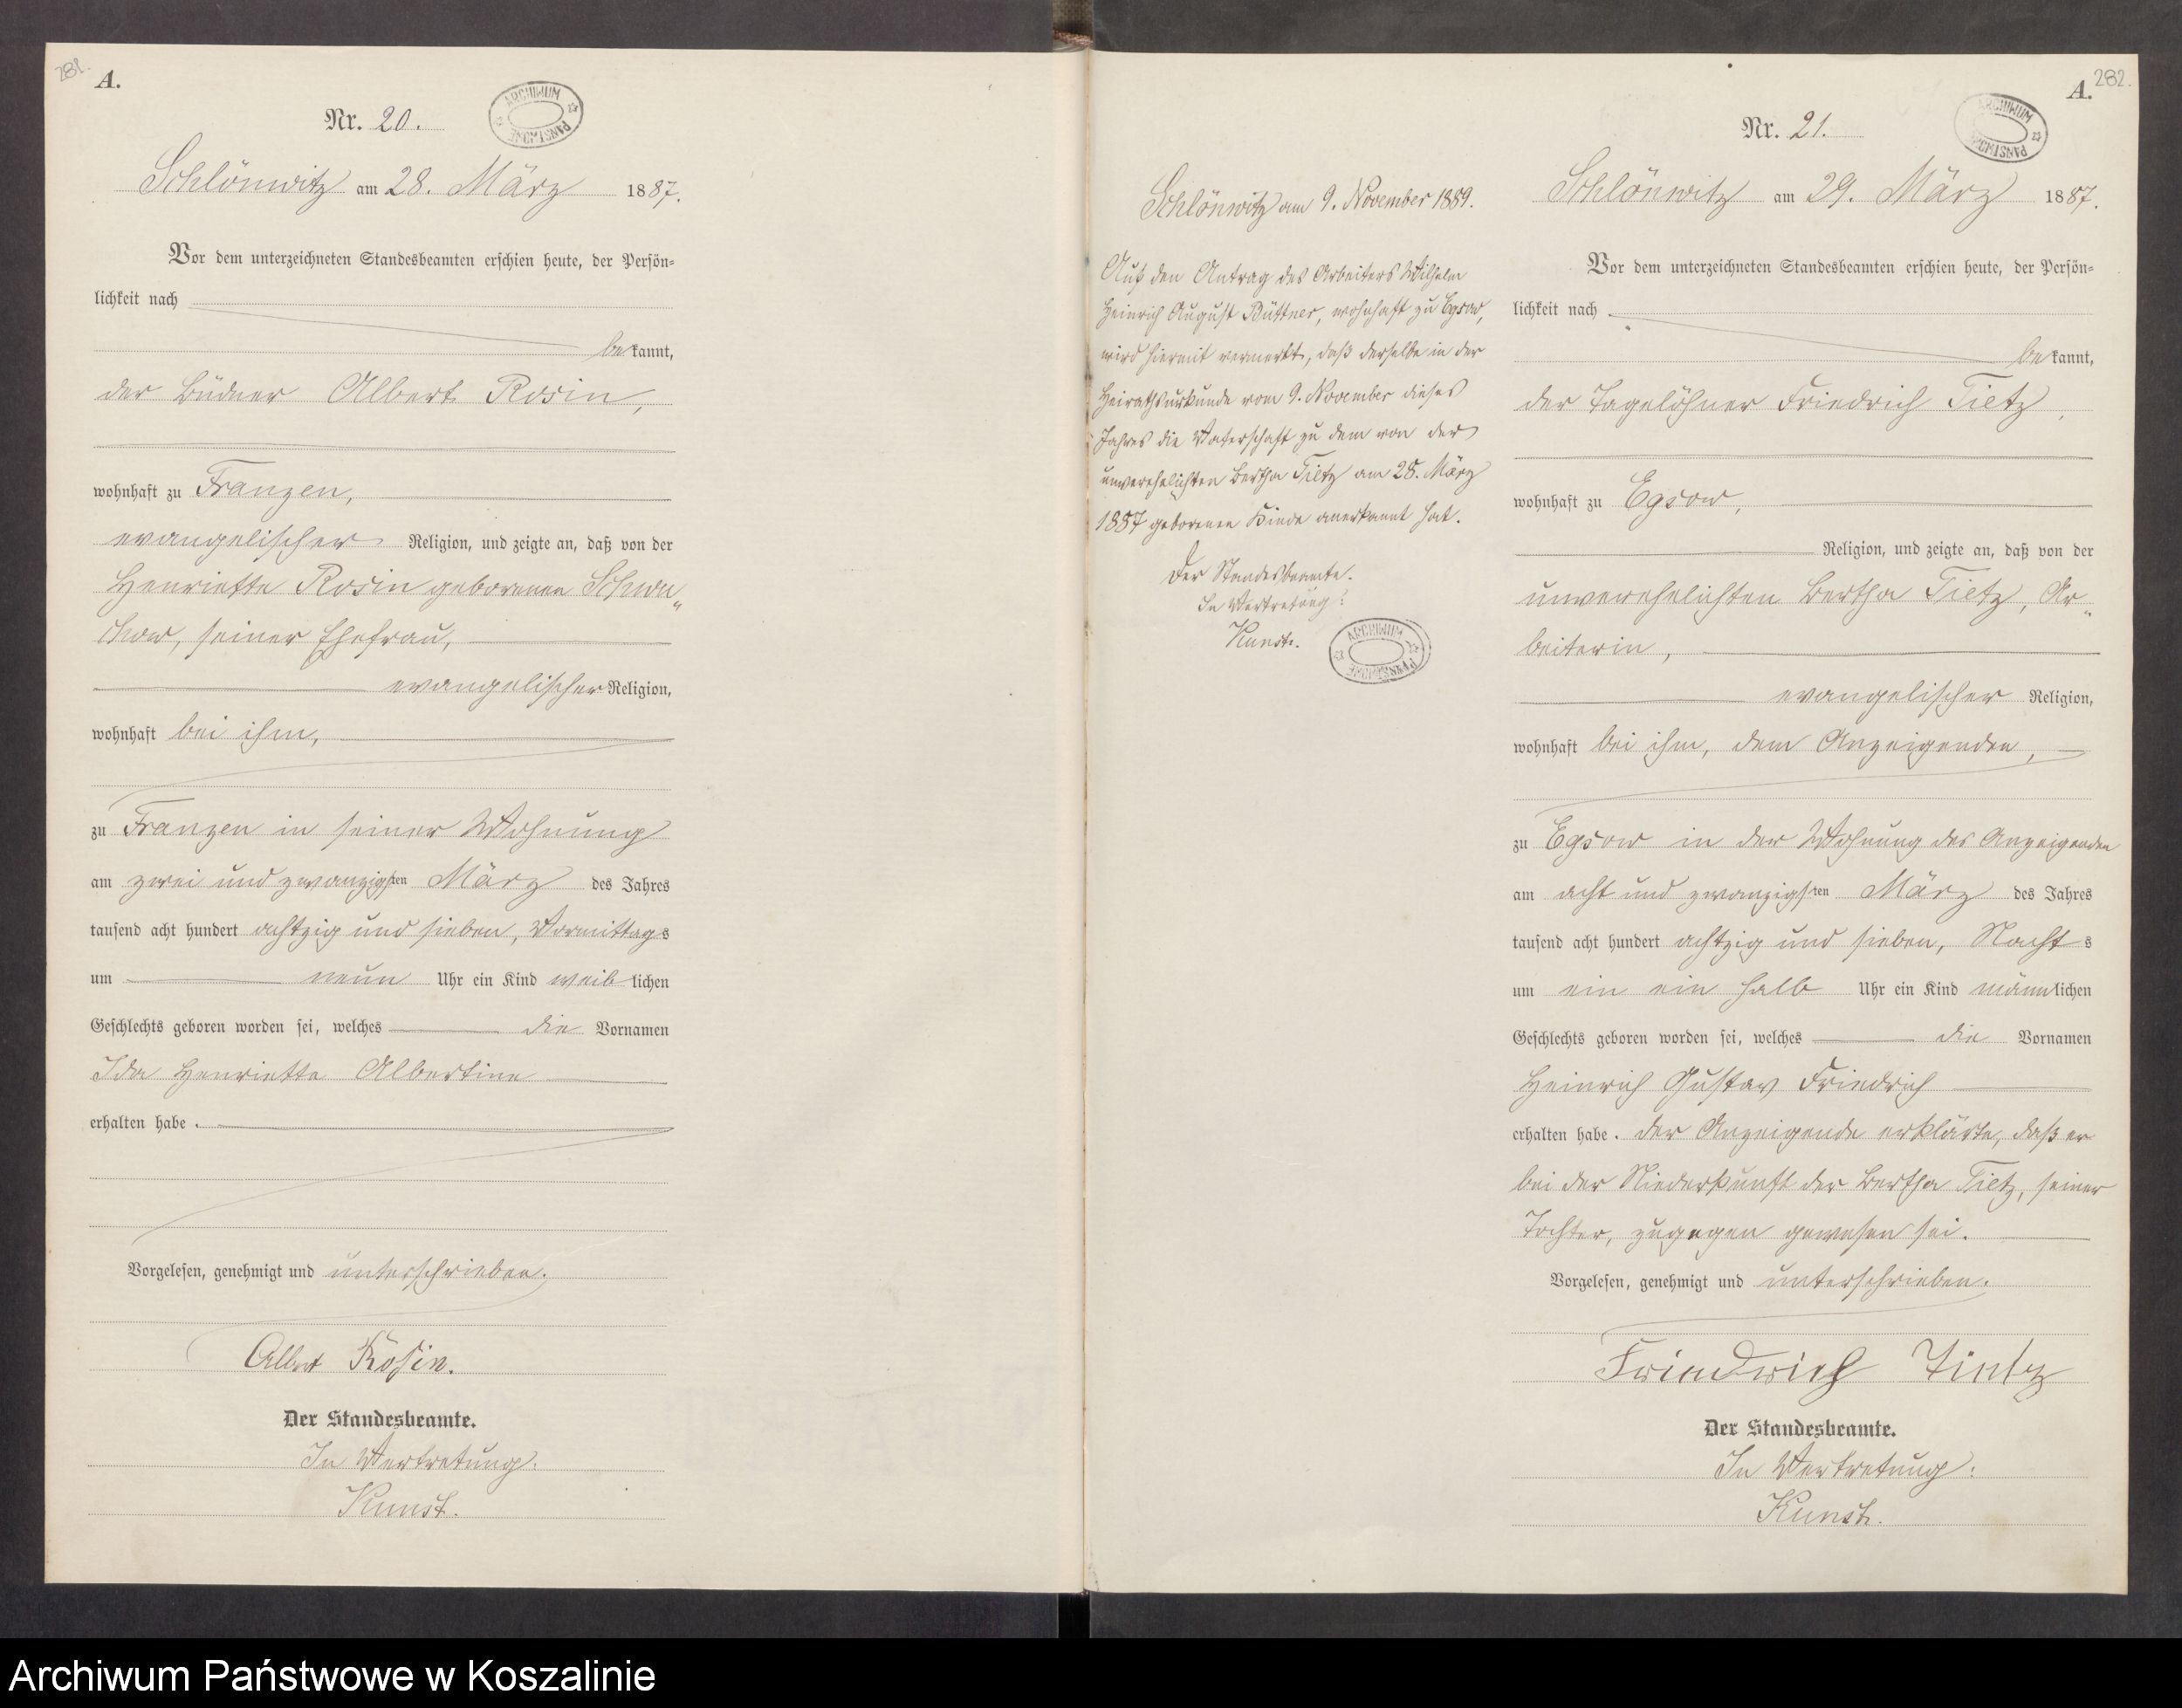 281.
A.
Nr. 20.
ARCHIWUM PAŃSTWOWE
Schlönwitz am 28. März 1887.
Vor dem unterzeichneten Standesbeamten erschien heute, der Persön=
lichkeit nach
bekannt,
der Büdner Albert Rosin,
wohnhaft zu Franzen,
evangelischer Religion, und zeigte an, daß von der
Henriette Rosin geborenen Schwu„
chow, seiner Ehefrau,
evangelischer Religion,
wohnhaft bei ihm,
zu Franzen in seiner Wohnung
am zwei und zwanzigsten März des Jahres
tausend acht hundert achtzig und sieben, Vormittags
um neun Uhr ein Kind weiblichen
Geschlechts geboren worden sei, welches die Vornamen
Ida Henriette Albertine
erhalten habe.
Vorgelesen, genehmigt und unterschrieben.
Albert Rosin.
Der Standesbeamte.
In Vertretung:
Kunst.
Schlönwitz am 9. November 1889.
Auf den Antrag des Arbeiters Wilhelm
Heinrich August Büttner, wohnhaft zu Egsow,
wird hiermit vermerkt, daß derselbe in der
Heirathsurkunde vom 9. November dieses
Jahres die Vaterschaft zu dem von der
unverehelichten Bertha Tietz am 28. März
1887 geborenen Kinde anerkannt hat.
Der Standesbeamte.
In Vertretung:
Kunst.
ARCHIWUM PAŃSTWOWE
282.
A.
Nr. 21.
ARCHIWUM PAŃSTWOWE
Schlönwitz am 29. März 1887.
Vor dem unterzeichneten Standesbeamten erschien heute, der Persön=
lichkeit nach
bekannt,
der Tagelöhner Friedrich Tietz,
wohnhaft zu Egsow,
Religion, und zeigte an, daß von der
unverehelichten Bertha Tietz, Ar„
beiterin,
evangelischer Religion,
wohnhaft bei ihm, dem Anzeigenden,
zu Egsow in der Wohnung des Anzeigenden
am acht und zwanzigsten März des Jahres
tausend acht hundert achtzig und sieben, Nachts
um ein ein halb Uhr ein Kind männlichen
Geschlechts geboren worden sei, welches die Vornamen
Heinrich Gustav Friedrich
erhalten habe. Der Anzeigende erklärte, daß er
bei der Niederkunft der Bertha Tietz, seiner
Tochter, zugegen gewesen sei.
Vorgelesen, genehmigt und unterschrieben.
Friedrich Tietz
Der Standesbeamte.
In Vertretung:
Kunst.
Archiwum Państwowe w Koszalinie